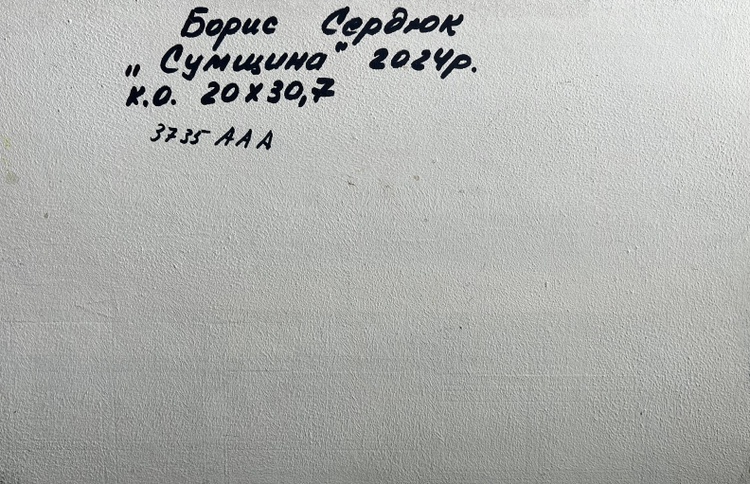 Борис Сердюк
„Сумщина" 2024р.
к.о. 20х30,7
3735 ААА